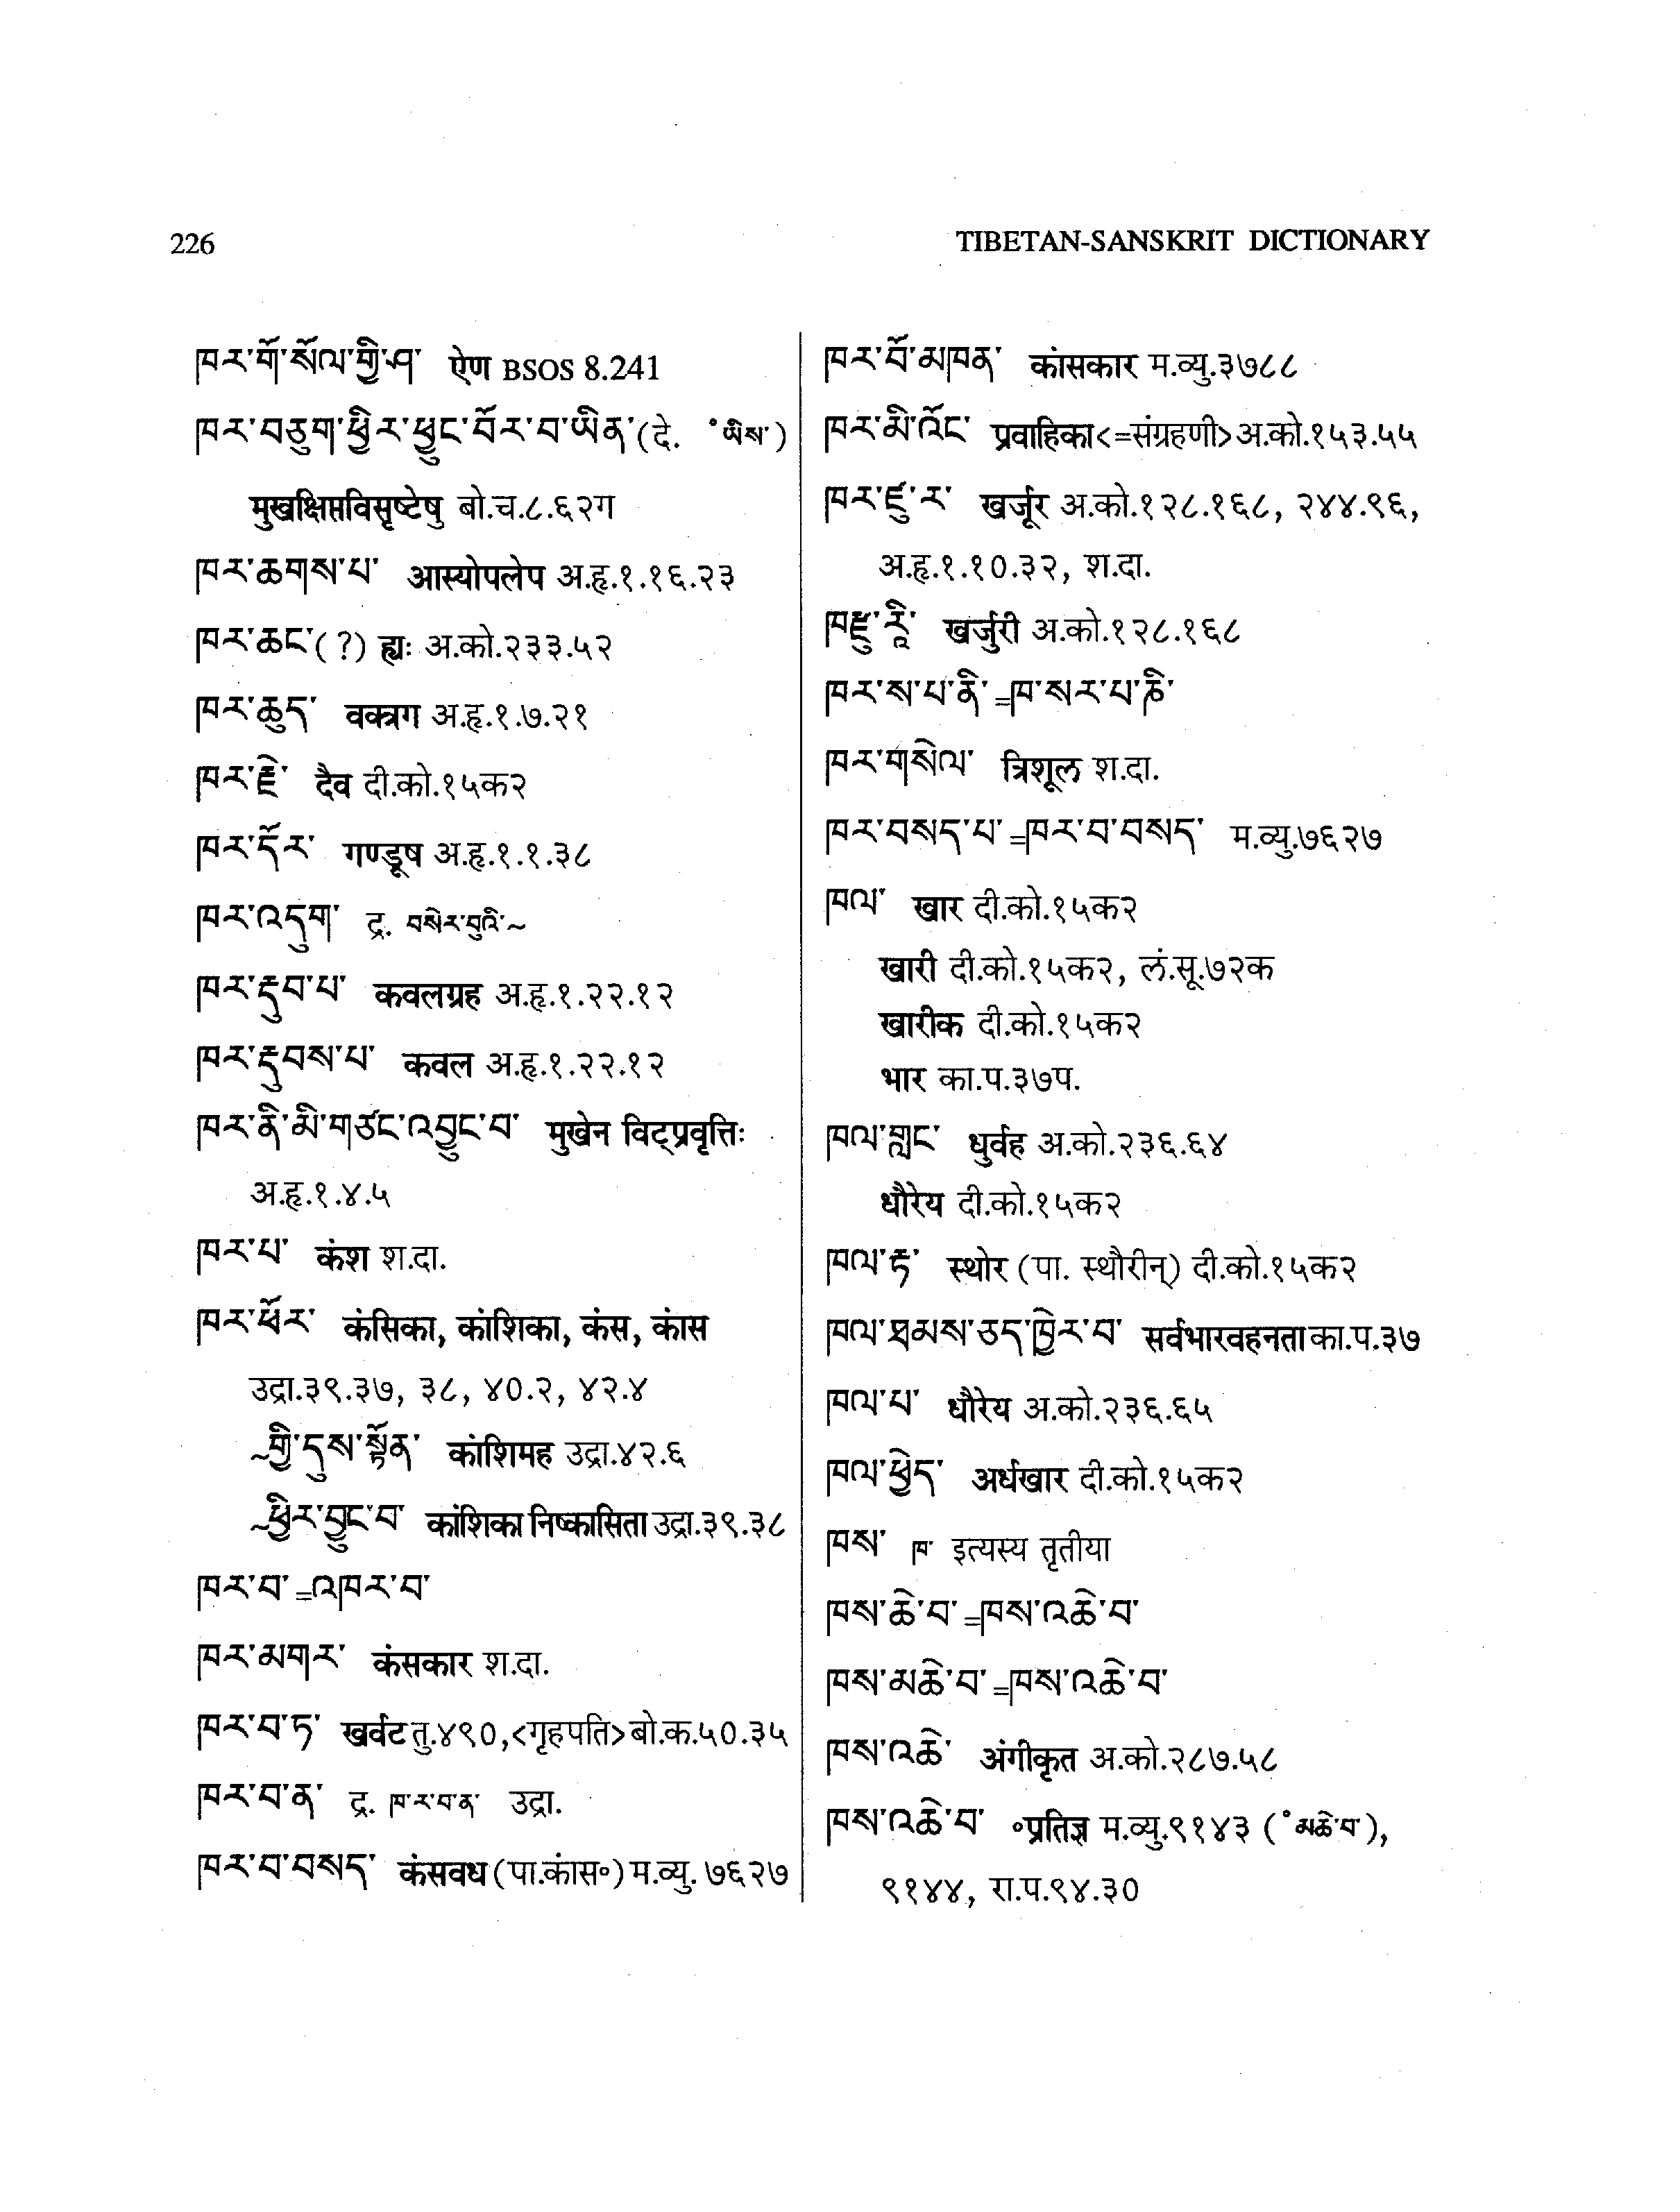 226
TIBETAN-SANSKRIT DICTIONARY
ཁར་གོ་སོལ་གྱི་ཤ་ ऐण BSOS 8.241
ཁར་བཅུག་ཕྱིར་ཕྱུང་བོར་བ་ཡིན་(दे. ˚ཡིས་)
मुखक्षिप्तविसृष्टेषु बो.च.८.६२ग
ཁར་ཆགས་པ་ आस्योपलेप अ.हृ.१.१६.२३
ཁར་ཆང་(?) ह्यः अ.को.२३३.५२
ཁར་ཆུད་ वक्त्रग अ.हृ.१.७.२१
ཁར་རྗེ་ दैव दी.को.१५क२
ཁར་དོར་ गण्डूष अ.हृ.१.१.३८
ཁར་འདུག་ द्र. བསེར་བུའི་~
ཁར་རྡུབ་པ་ कवलग्रह अ.हृ.१.२२.१२
ཁར་རྡུབས་པ་ कवल अ.हृ.१.२२.१२
ཁར་ནི་མི་གཙང་འབྱུང་བ་ मुखेन विट्प्रवृत्तिः
अ.हृ.१.४.५
ཁར་པ་ कंश श.दा.
ཁར་ཕོར་ कंसिका, कांशिका, कंस, कांस
उद्रा.३९.३७, ३८, ४०.२, ४२.४
~གྱི་དུས་སྟོན་ कांशिमह उद्रा.४२.६
~ཕྱིར་བྱུང་བ་ कांशिका निष्कासिता उद्रा.३९.३८
ཁར་བ་=འཁར་བ་
ཁར་མགར་ कंसकार श.दा.
ཁར་བ་ཏ་ खर्वट तु.४९०,<गृहपति> बो.क.५०.३५
ཁར་བ་ན་ द्र. ཁ་ར་བ་ན་ उद्रा.
ཁར་བ་བསད་ कंसवध (पा.कांस॰) म.व्यु. ७६२७
ཁར་བོ་མཁན་ कांसकार म.व्यु.३७८८
ཁར་མི་འོང་ प्रवाहिका<=संग्रहणी> अ.को.१५३.५५
ཁར་ཛུ་ར་ खर्जूर अ.को.१२८.१६८, २४४.९६,
अ.हृ.१.१०.३२, श.दा.
ཁརྫུ་རཱི་ खर्जुरी अ.को.१२८.१६८
ཁར་ས་པ་ནི་=ཁ་སར་པ་ཎི་
ཁར་གསེལ་ त्रिशूल श.दा.
ཁར་བསད་པ་=ཁར་བ་བསད་ म.व्यु.७६२७
ཁལ་ खार दी.को.१५क२
खारी दी.को.१५क२, लं.सू.७२क
खारीक दी.को.१५क२
भार का.प.३७प.
ཁལ་གླང་ धुर्वह अ.को.२३६.६४
धौरेय दी.को.१५क२
ཁལ་རྟ་ स्थोर (पा. स्थौरीन्) दी.को.१५क२
ཁལ་ཐམས་ཅད་ཁྱེར་བ་ सर्वभारवहनता का.प.३७
ཁལ་པ་ धौरेय अ.को.२३६.६५
ཁལ་ཕྱེད་ अर्धखार दी.को.१५क२
ཁས་ ཁ་ इत्यस्य तृतीया
ཁས་ཆེ་བ་=ཁས་འཆེ་བ་
ཁས་མཆེ་བ་=ཁས་འཆེ་བ་
ཁས་འཆེ་ अंगीकृत अ.को.२८७.५८
ཁས་འཆེ་བ་ ॰प्रतिज्ञ म.व्यु.९१४३ (˚མཆེ་བ་),
९१४४, रा.प.९४.३०